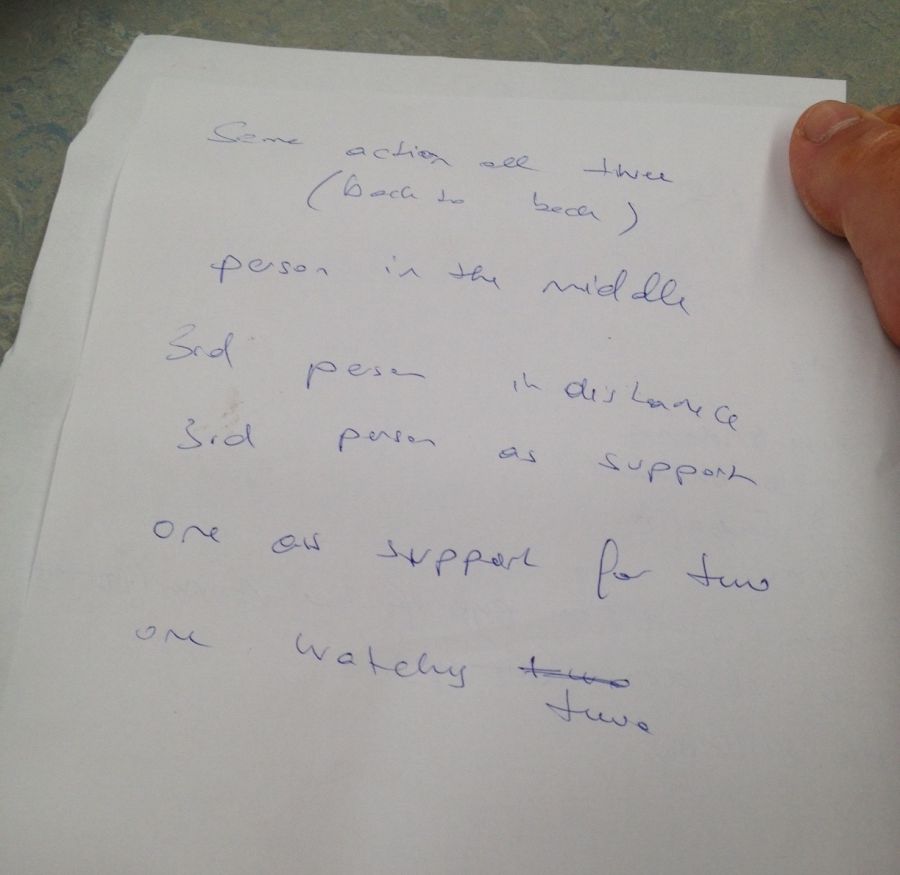 Same action all three
(back to back)
person in the middle
3rd person in distance
3rd person as support
one as support for two
one watching two
two